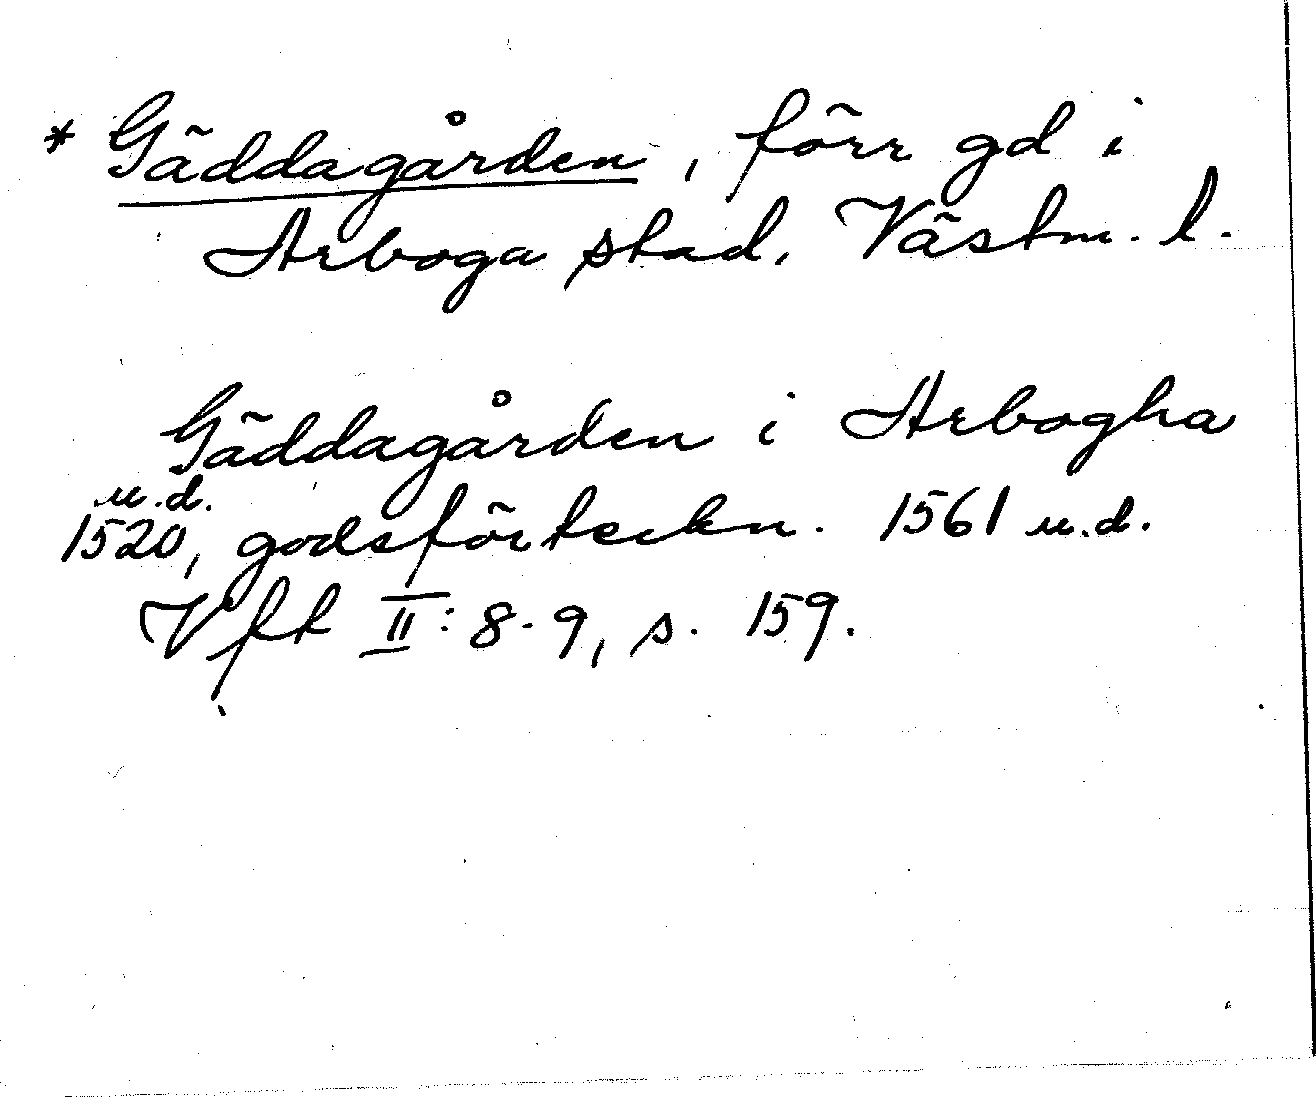 * Gäddagården, förr gd i
Arboga stad, Västm. l.
Gäddagården i Arbogha
u.d.
1520, godsförteckn. 1561 u.d.
Vft II: 8-9, s. 159.